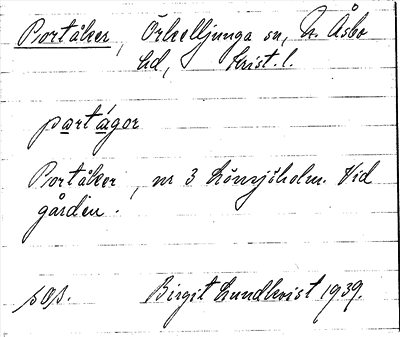 Portåker, Örkelljunga sn, N. Åsbo
hd, Krist. l.
portágor
Portåker, nr 3 Lönnsjöholm. Vid
gården.
sqs.
Birgit Lundkvist 1939.